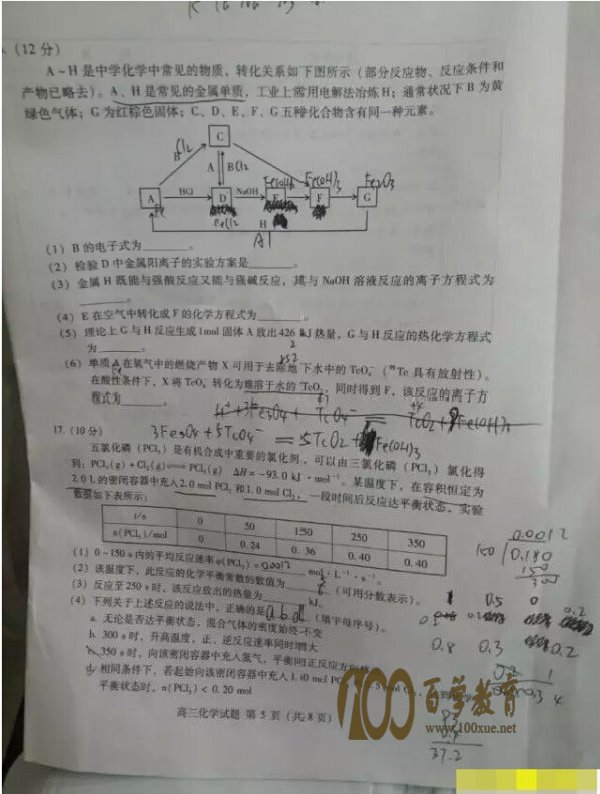 (12分)
A～H是中学化学中常见的物质，转化关系如下图所示（部分反应物、反应条件和
产物已略去）。A、H是常见的金属单质，工业上常用电解法冶炼H；通常状况下B为黄
绿色气体；G为红棕色固体；C、D、E、F、G五种化合物含有同一种元素。
C
B Cl2 A B Cl2 Fe(OH)2 Fe(OH)3 Fe2O3
A HCl D NaOH E F G
Fe FeCl2 H
Al
(1) B的电子式为______。
(2) 检验D中金属阳离子的实验方案是______。
(3) 金属H既能与强酸反应又能与强碱反应，其与NaOH溶液反应的离子方程式为
______。
(4) E在空气中转化成F的化学方程式为______。
(5) 理论上G与H反应生成1mol固体A放出426 kJ热量，G与H反应的热化学方程式
为______。
2
852
(6) 单质A在氧气中的燃烧产物X可用于去除地下水中的TcO₄⁻（⁹⁹Tc具有放射性）。
Fe
在酸性条件下，X将TcO₄⁻转化为难溶于水的TcO₂，同时得到F，该反应的离子方
程式为______。
H⁺+3Fe3O4 + TcO4⁻ = TcO2+9Fe(OH)3
3Fe3O4+5TcO4⁻ = 5TcO2+ Fe(OH)3
17. (10分)
五氯化磷（PCl₅）是有机合成中重要的氯化剂，可以由三氯化磷（PCl₃）氯化得
到：PCl₃(g)+Cl₂(g)⇌PCl₅(g) ΔH=−93.0 kJ·mol⁻¹。某温度下，在容积恒定为
2.0 L的密闭容器中充入2.0 mol PCl₃和1.0 mol Cl₂，一段时间后反应达平衡状态，实验
数据如下表所示：
t/s 0 50 150 250 350
n(PCl₅)/mol 0 0.24 0.36 0.40 0.40
(1) 0~150 s内的平均反应速率v(PCl₃)=0.0012 mol·L⁻¹·s⁻¹。
(2) 该温度下，此反应的化学平衡常数的数值为______（可用分数表示）。
(3) 反应至250 s时，该反应放出的热量为______kJ。
(4) 下列关于上述反应的说法中，正确的是abd（填字母序号）。
a. 无论是否达平衡状态，混合气体的密度始终不变
b. 300 s时，升高温度，正、逆反应速率同时增大
350 s时，向该密闭容器中充入氮气，平衡向正反应方向移动
d. 相同条件下，若起始向该密闭容器中充入1.0 mol PCl₃
平衡状态时，n(PCl₅) < 0.20 mol
0.0012
150 0.180
150
300
1 0.5 0
0.2
0.8 0.3 0.2
0.2 1
4
37.2
100百学教育
www.100xue.net
高三化学试题 第5页（共8页）